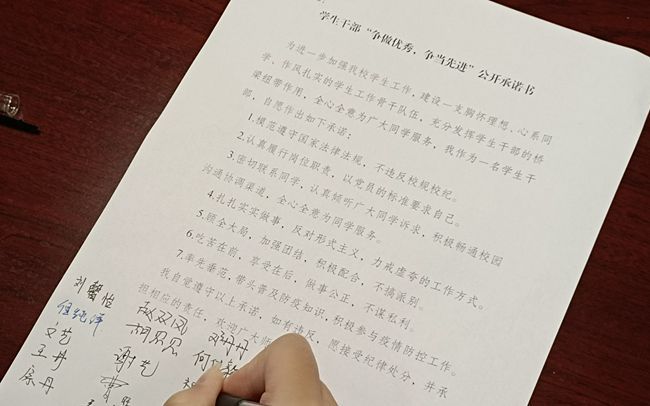 学生干部“争做优秀，争当先进”公开承诺书
为进一步加强我校学生工作，建设一支胸怀理想、心系同
学、作风扎实的学生工作骨干队伍，充分发挥学生干部的桥
梁纽带作用，全心全意为广大同学服务，我作为一名学生干
部，自愿作出如下承诺：
1.模范遵守国家法律法规，不违反校规校纪。
2.认真履行岗位职责，以党员的标准要求自己。
3.密切联系同学，认真倾听广大同学诉求，积极畅通校园
沟通协调渠道，全心全意为同学服务。
4.扎扎实实做事，反对形式主义，力戒虚夸的工作方式。
5.顾全大局，加强团结，积极配合，不搞派别。
6.吃苦在前，享受在后，做事公正，不谋私利。
7.率先垂范，带头普及防疫知识，积极参与疫情防控工作。
我自觉遵守以上承诺，如有违反，愿接受纪律处分，并承
担相应的责任，欢迎广大师
刘馨怡 赵双凤 邓丹丹
文艺 谢艺
王丹